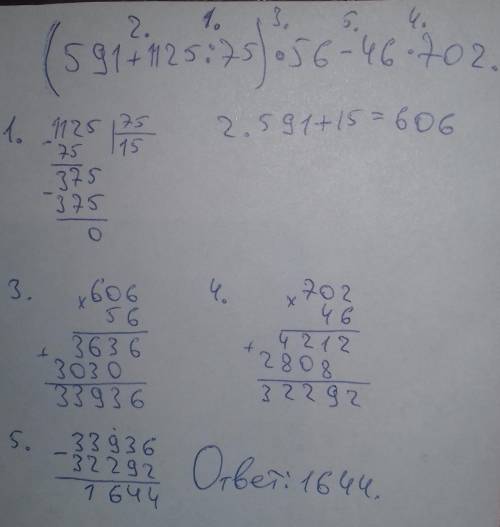 2. 1. 3. 5. 4.
(591+1125:75)•56-46•702.
1. -1125 |75
75 15
-375
375
0
2. 591+15=606
3. ×606
56
+3636
3030
33936
4. ×702
46
+4212
2808
32292
5. -33936
32292
1644
Ответ: 1644.